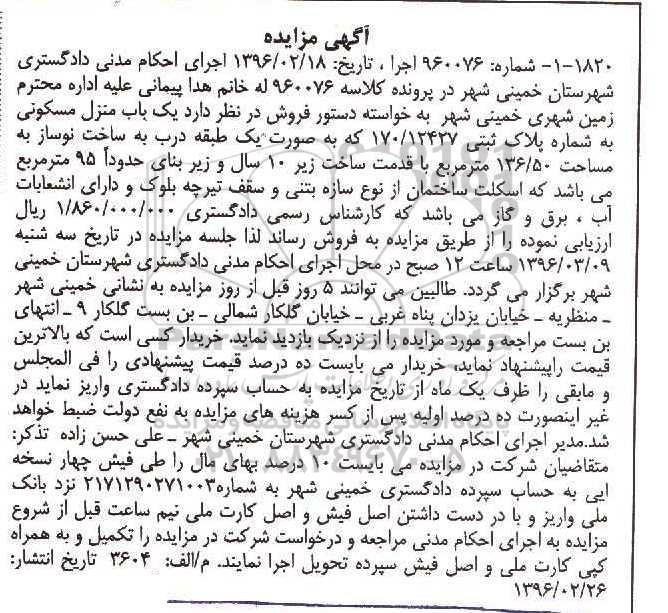 آگهی مزایده
۱۸۲۰-۱-۱- شماره: ۹۶۰۰۷۶ اجرا ، تاریخ: ۱۳۹۶/۰۲/۱۸ اجرای احکام مدنی دادگستری
شهرستان خمینی شهر در پرونده کلاسه ۹۶۰۰۷۶ له خانم هدا پیمانی علیه اداره محترم
زمین شهری خمینی شهر به خواسته دستور فروش در نظر دارد یک باب منزل مسکونی
به شماره پلاک ثبتی ۱۷۰/۱۳۴۲۷ که به صورت یک طبقه درب به ساخت نوساز به
مساحت ۱۳۶/۵۰ مترمربع با قدمت ساخت زیر ۱۰ سال و زیر بنای حدوداً ۹۵ مترمربع
می باشد که اسکلت ساختمان از نوع سازه بتنی و سقف تیرچه بلوک و دارای انشعابات
آب ، برق و گاز می باشد که کارشناس رسمی دادگستری ۱/۸۶۰/۰۰۰/۰۰۰ ریال
ارزیابی نموده را از طریق مزایده به فروش رساند لذا جلسه مزایده در تاریخ سه شنبه
۱۳۹۶/۰۳/۰۹ ساعت ۱۲ صبح در محل اجرای احکام مدنی دادگستری شهرستان خمینی
شهر برگزار می گردد. طالبین می توانند ۵ روز قبل از روز مزایده به نشانی خمینی شهر
ـ منظریه ـ خیابان یزدان پناه غربی ـ خیابان گلکار شمالی ـ بن بست گلکار ۹ ـ انتهای
بن بست مراجعه و مورد مزایده را از نزدیک بازدید نماید. خریدار کسی است که بالاترین
قیمت راپیشنهاد نماید، خریدار می بایست ده درصد قیمت پیشنهادی را فی المجلس
و مابقی را ظرف یک ماه از تاریخ مزایده به حساب سپرده دادگستری واریز نماید در
غیر اینصورت ده درصد اولیه پس از کسر هزینه های مزایده به نفع دولت ضبط خواهد
شد.مدیر اجرای احکام مدنی دادگستری شهرستان خمینی شهر ـ علی حسن زاده تذکر:
متقاضیان شرکت در مزایده می بایست ۱۰ درصد بهای مال را طی فیش چهار نسخه
ایی به حساب سپرده دادگستری خمینی شهر به شماره۲۱۷۱۲۹۰۲۷۱۰۰۳ نزد بانک
ملی واریز و با در دست داشتن اصل فیش و اصل کارت ملی نیم ساعت قبل از شروع
مزایده به اجرای احکام مدنی مراجعه و درخواست شرکت در مزایده را تکمیل و به همراه
کپی کارت ملی و اصل فیش سپرده تحویل اجرا نمایند. م/الف: ۳۶۰۴ تاریخ انتشار:
۱۳۹۶/۰۲/۲۶